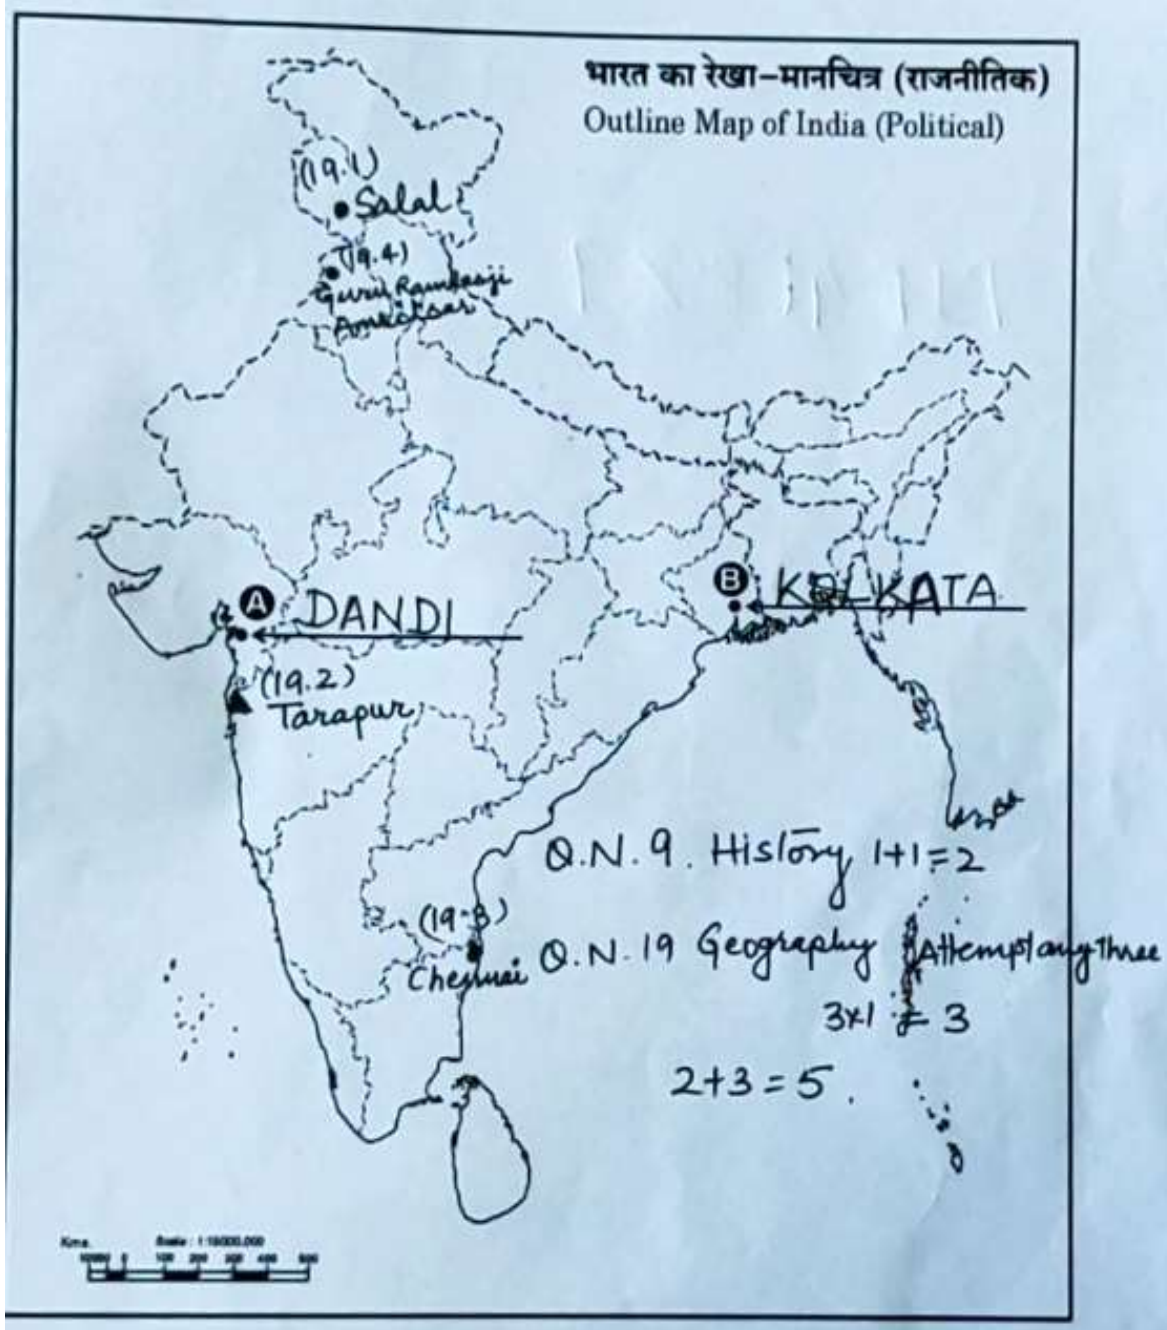 भारत का रेखा-मानचित्र (राजनीतिक)
Outline Map of India (Political)
(19.1)
Salal
(19.4)
Guru Ramdasji
Amritsar
A DANDI
B KOLKATA
(19.2)
Tarapur
Q.N.9. History 1+1=2
(19.3)
Chennai
Q.N.19 Geography Attempt any three
3x1 = 3
2+3=5.
Kms. Scale : 1:15000,000
0 100 200 300 400 500